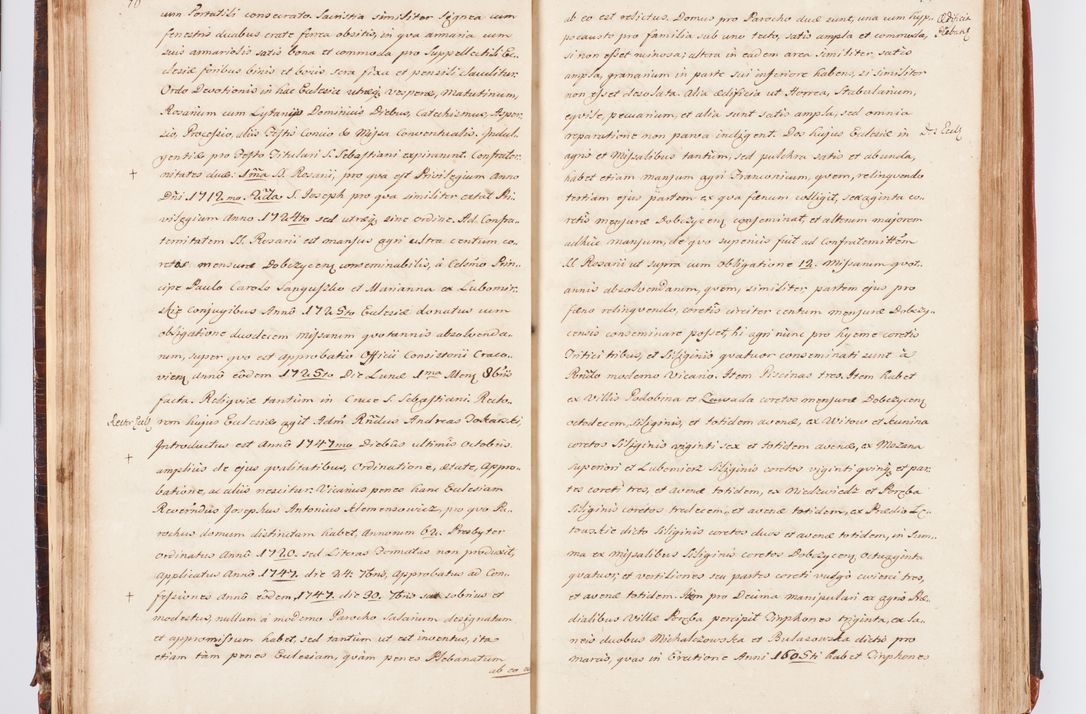 70
cum Portatili consecrato. Sacristia similiter lignea cum
fenestris duabus crate ferrea obsitis, in qva armaria cum
suis armariolis satis bona et commoda pro Suppellectili Ec-
clesiæ foribus binis et bonis sera fixa et pensili clauditur.
Ordo Devotionis in hac Ecclesia utræq Vesperæ, Matutinum,
Rosarium cum Lytanijs Dominicis Diebus, Catechismus, Asper-
sio, Processio, alijs Festis Concio & Missa Conventualis. Indul-
gentiæ pro Festo Titulari S. Sebastiani expirarunt. Confrater-
nitates duæ: 1ma SS. Rosarij, pro qva est Privilegium Anno
Dni 1712. mo 2da S. Joseph pro qva similiter extat Pri-
vilegium Anno 1724to sed utræq sine ordine. Ad Confra-
ternitatem SS. Rosarii est mansus agri ultra centum co-
retos mensuræ Dobczycen conseminabilis, à Celsmo Prin-
cipe Paulo Carolo Sanguszko et Marianna ex Lubomir-
skie conjugibus Anno 1725to Ecclesiæ donatus cum
obligatione duodecim missarum qvotannis absolvenda-
rum, super qvo est approbatio Officii Consistorii Craco-
vien, anno eodem 1725to Die Lunæ 1ma Mens 8bris
facta. Reliqviæ tantum in Cruce S. Sebastiani. Recto-
Rector Eccl
rem hujus Ecclesiæ agit Adm Rndus Andreas Tokarski,
Introductus est Anno 1747mo Diebus ultimis Octobris
amplius de ejus qvalitatibus, Ordinatione, ætate, Appro-
batione, ac aliis nescitur. Vicarius penes hanc Ecclesiam
Reverendus Josephus Antonius Klemensowicz, pro qvo Pa-
rochus domum distinctam habet, Annorum 62. Presbyter
ordinatus Anno 1720. sed Literas Formatas non produxit,
Applicatus Anno 1747. die 24. 7bris, Approbatus ad Con-
fessiones Anno eodem 1747. die 30. 7bris sobrius et
modestus, nullum à moderno Parocho Salarium designatum
et appromissum habet, sed tantum ut est inventus, ita
etiam tam penes Ecclesiam, qvam penes Plebanatum
ab eo
ab eo est relictus. Domus pro Parocho duæ sunt, una cum hyp-
Ædificia
Plebani
pocausto pro familia sub uno tecto, satis ampla et commoda,
si non esset ruinosa; altera in eadem area similiter satis
ampla, granarium in parte sui inferiore habens, si similiter
non esset desolata. Alia ædificia ut Horrea, Stabularium,
eqvile, pecuarium, et alia sunt satis ampla, sed omnia
reparatione non parva indigent. Dos hujus Ecclesiæ in
Dos Eccl
agris et Missalibus tantum, sed pulchra satis et abunda,
habet etiam mansum agri Franconicum, qvem, relinqvendo
tertiam ejus partem ex qva fænum colligit, sexaginta co-
retis mensuræ Dobczycen conseminat, et alterum majorem
adhuc mansum, de qvo superius fuit ad Confraternittem
SS. Rosarii ut supra cum obligatione 12. Missarum qvot-
annis absolvendarum, qvem, similiter partem ejus pro
fæno relinqvendo, coretis circiter centum mensuræ Dobczy-
censis conseminare posset, hi agri nunc pro hyeme coretis
Tritici tribus, et Siliginis qvatuor conseminati sunt à
Rndo moderno Vicario. Item Piscinas tres. Item habet
ex Villis Podobina et Zawada coretos mensuræ Dobczycen
octodecem, Siliginis, et totidem avenæ, ex Witow et Kunina
coretos Siliginis viginti sex et totidem avenæ, ex Mszana
superiori et Lubomierz Siliginis coretos viginti qvinq et par-
tes coreti tres, et avenæ totidem, ex Niedzwiedz et Poręba
Siliginis coretos tredecem, et avenæ totidem, ex Prædio Le-
towskie dicto Siliginis coretos duos et avenæ totidem, in Sum-
ma ex missalibus Siliginis coretos Dobczycen Octuaginta
qvatuor, et vertiliones seu partes coreti vulgo cwierci tres,
et avenæ totidem. Item pro Decima manipulari ex agris Præ-
dialibus Villæ Poręba percipit Tinphones triginta, ex la-
neis duobus Michalczowska et Bulazowska dictis pro
marcis, qvas in Erectione Anni 1605ti habet Tinphones